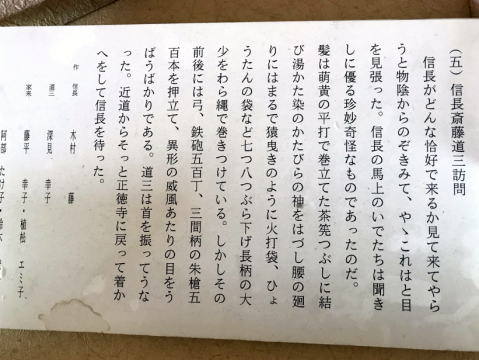 (五) 信長斎藤道三訪問
信長がどんな恰好で来るか見て来てやら
うと物陰からのぞきみて、やゝこれはと目
を見張った。信長の馬上のいでたちは聞き
しに優る珍妙奇怪なものであったのだ。
髪は萌黄の平打で巻立てた茶筅つぶしに結
び湯かた染のかたびらの袖をはづし腰の廻
りにはまるで猿曳きのように火打袋、ひょ
うたんの袋など七つ八つぶら下げ長柄の大
少をわら縄で巻きつけている。しかしその
前後には弓、鉄砲五百丁、三間柄の朱槍五
百本を押立て、異形の威風あたりの目をう
ばうばかりである。道三は首を振ってうな
った。近道からそっと正徳寺に戻って着か
へをして信長を待った。
作 信長 木村 藤
道三 深見 幸子
家来 藤平 幸子・植松 エミ子
阿部 たけ子・鈴木